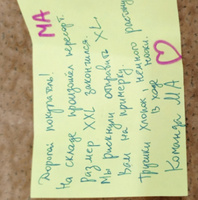 МА
Дорогой покупатель!
На складе произошёл пересорт.
Размер XXL закончился.
Мы рискнули отправить XL
Вам на примерку.
Трусики хлопок, немного растянут
в ходе носки.
Команда МА